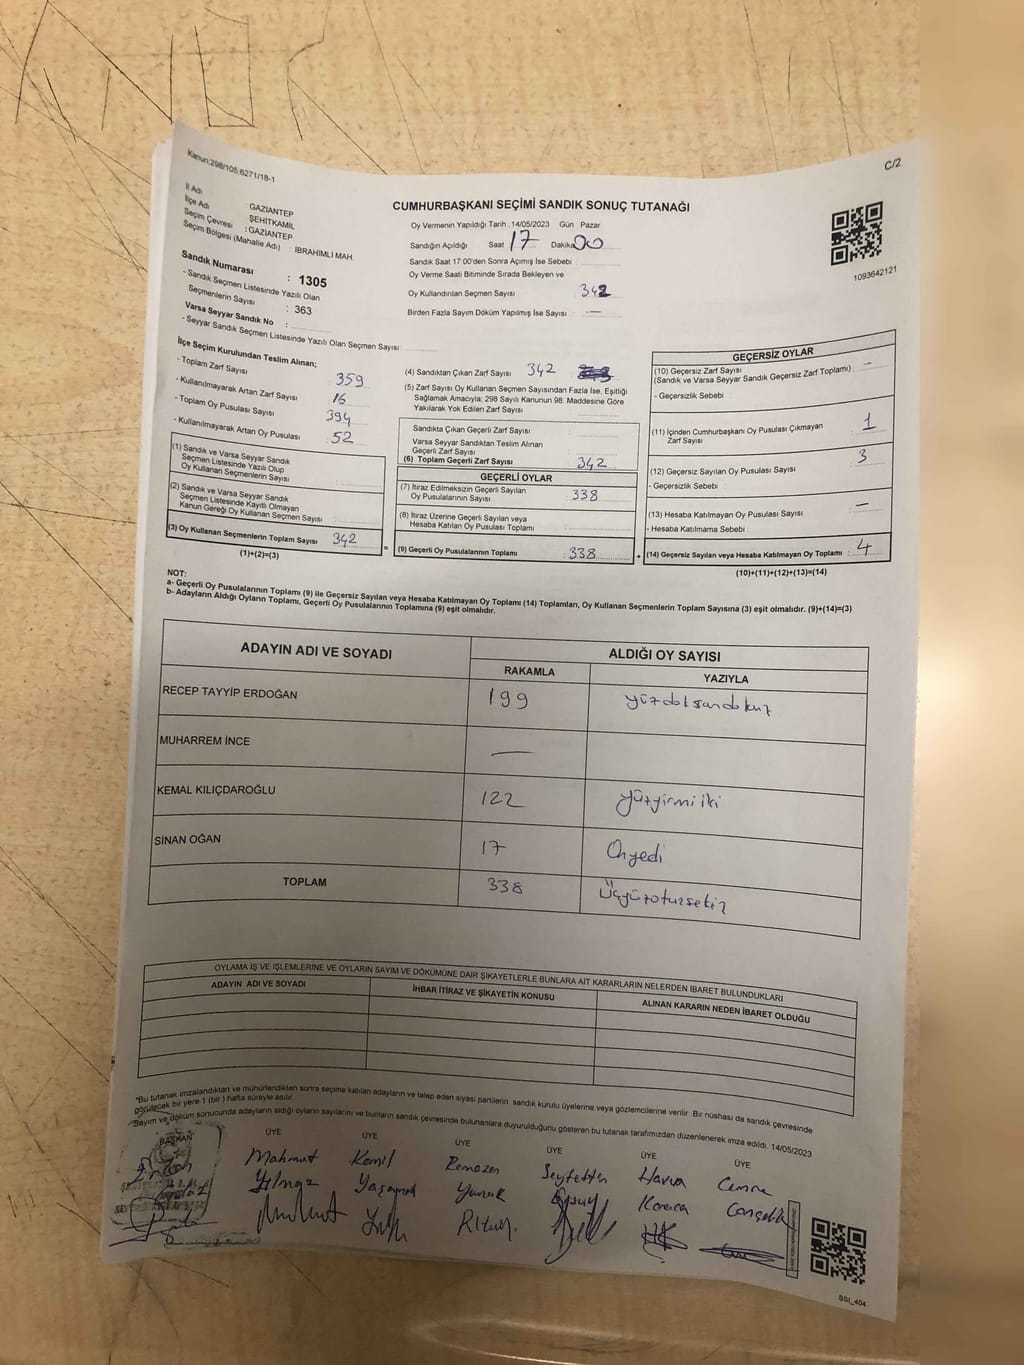 Kanun:298/105,6271/18-1
C/2
CUMHURBAŞKANI SEÇİMİ SANDIK SONUÇ TUTANAĞI
İl Adı : GAZİANTEP
İlçe Adı : ŞEHİTKAMİL
Seçim Çevresi : GAZİANTEP
Seçim Bölgesi (Mahalle Adı) : İBRAHİMLİ MAH.
Sandık Numarası : 1305
- Sandık Seçmen Listesinde Yazılı Olan
Seçmenlerin Sayısı : 363
Varsa Seyyar Sandık No :
- Seyyar Sandık Seçmen Listesinde Yazılı Olan Seçmen Sayısı:
Oy Vermenin Yapıldığı Tarih : 14/05/2023 Gün : Pazar
Sandığın Açıldığı Saat 17 Dakika 00
Sandık Saat 17:00'den Sonra Açımış İse Sebebi :
Oy Verme Saati Bitiminde Sırada Bekleyen ve
Oy Kullandırılan Seçmen Sayısı 342
Birden Fazla Sayım Döküm Yapılmış İse Sayısı : —
1093642121
İlçe Seçim Kurulundan Teslim Alınan;
- Toplam Zarf Sayısı 359
- Kullanılmayarak Artan Zarf Sayısı 16
- Toplam Oy Pusulası Sayısı 394
- Kullanılmayarak Artan Oy Pusulası 52
(1) Sandık ve Varsa Seyyar Sandık
Seçmen Listesinde Yazılı Olup
Oy Kullanan Seçmenlerin Sayısı :
(2) Sandık ve Varsa Seyyar Sandık
Seçmen Listesinde Kayıtlı Olmayan
Kanun Gereği Oy Kullanan Seçmen Sayısı :
(3) Oy Kullanan Seçmenlerin Toplam Sayısı 342
(1)+(2)=(3)
(4) Sandıktan Çıkan Zarf Sayısı : 342
(5) Zarf Sayısı Oy Kullanan Seçmen Sayısından Fazla İse, Eşitliği
Sağlamak Amacıyla, 298 Sayılı Kanunun 98. Maddesine Göre
Yakılarak Yok Edilen Zarf Sayısı
Sandıkta Çıkan Geçerli Zarf Sayısı :
Varsa Seyyar Sandıktan Teslim Alınan
Geçerli Zarf Sayısı
(6) Toplam Geçerli Zarf Sayısı : 342
GEÇERLİ OYLAR
(7) İtiraz Edilmeksizin Geçerli Sayılan
Oy Pusulalarının Sayısı : 338
(8) İtiraz Üzerine Geçerli Sayılan veya
Hesaba Katılan Oy Pusulası Toplamı :
= (9) Geçerli Oy Pusulalarının Toplamı : 338
GEÇERSİZ OYLAR
(10) Geçersiz Zarf Sayısı
(Sandık ve Varsa Seyyar Sandık Geçersiz Zarf Toplamı) : —
- Geçersizlik Sebebi :
(11) İçinden Cumhurbaşkanı Oy Pusulası Çıkmayan
Zarf Sayısı 1
(12) Geçersiz Sayılan Oy Pusulası Sayısı : 3
- Geçersizlik Sebebi :
(13) Hesaba Katılmayan Oy Pusulası Sayısı : —
- Hesaba Katılmama Sebebi :
+ (14) Geçersiz Sayılan veya Hesaba Katılmayan Oy Toplamı : 4
(10)+(11)+(12)+(13)=(14)
NOT:
a- Geçerli Oy Pusulalarının Toplamı (9) ile Geçersiz Sayılan veya Hesaba Katılmayan Oy Toplamı (14) Toplamları, Oy Kullanan Seçmenlerin Toplam Sayısına (3) eşit olmalıdır. (9)+(14)=(3)
b- Adayların Aldığı Oyların Toplamı, Geçerli Oy Pusulalarının Toplamına (9) eşit olmalıdır.
ADAYIN ADI VE SOYADI ALDIĞI OY SAYISI
RAKAMLA YAZIYLA
RECEP TAYYİP ERDOĞAN 199 yüzdoksandokuz
MUHARREM İNCE —
KEMAL KILIÇDAROĞLU 122 yüzyirmiiki
SİNAN OĞAN 17 Onyedi
TOPLAM 338 Üçyüzotuzsekiz
OYLAMA İŞ VE İŞLEMLERİNE VE OYLARIN SAYIM VE DÖKÜMÜNE DAİR ŞİKAYETLERLE BUNLARA AİT KARARLARIN NELERDEN İBARET BULUNDUKLARI
ADAYIN ADI VE SOYADI İHBAR İTİRAZ VE ŞİKAYETİN KONUSU ALINAN KARARIN NEDEN İBARET OLDUĞU
"Bu tutanak imzalandıktan ve mühürlendikten sonra seçime katılan adayların ve talep eden siyasi partilerin sandık kurulu üyelerine veya gözlemcilerine verilir. Bir nüshası da sandık çevresinde
görülecek bir yere 1 (bir) hafta süreyle asılır.
Sayım ve döküm sonucunda adayların aldığı oyların sayılarını ve bunların sandık çevresinde bulunanlara duyurulduğunu gösteren bu tutanak tarafımızdan düzenlenerek imza edildi. 14/05/2023
BAŞKAN ÜYE ÜYE ÜYE ÜYE ÜYE ÜYE
Mahmut Kamil Ramazan Seyfettin Havva Cemre
Yılmaz
SSI_404